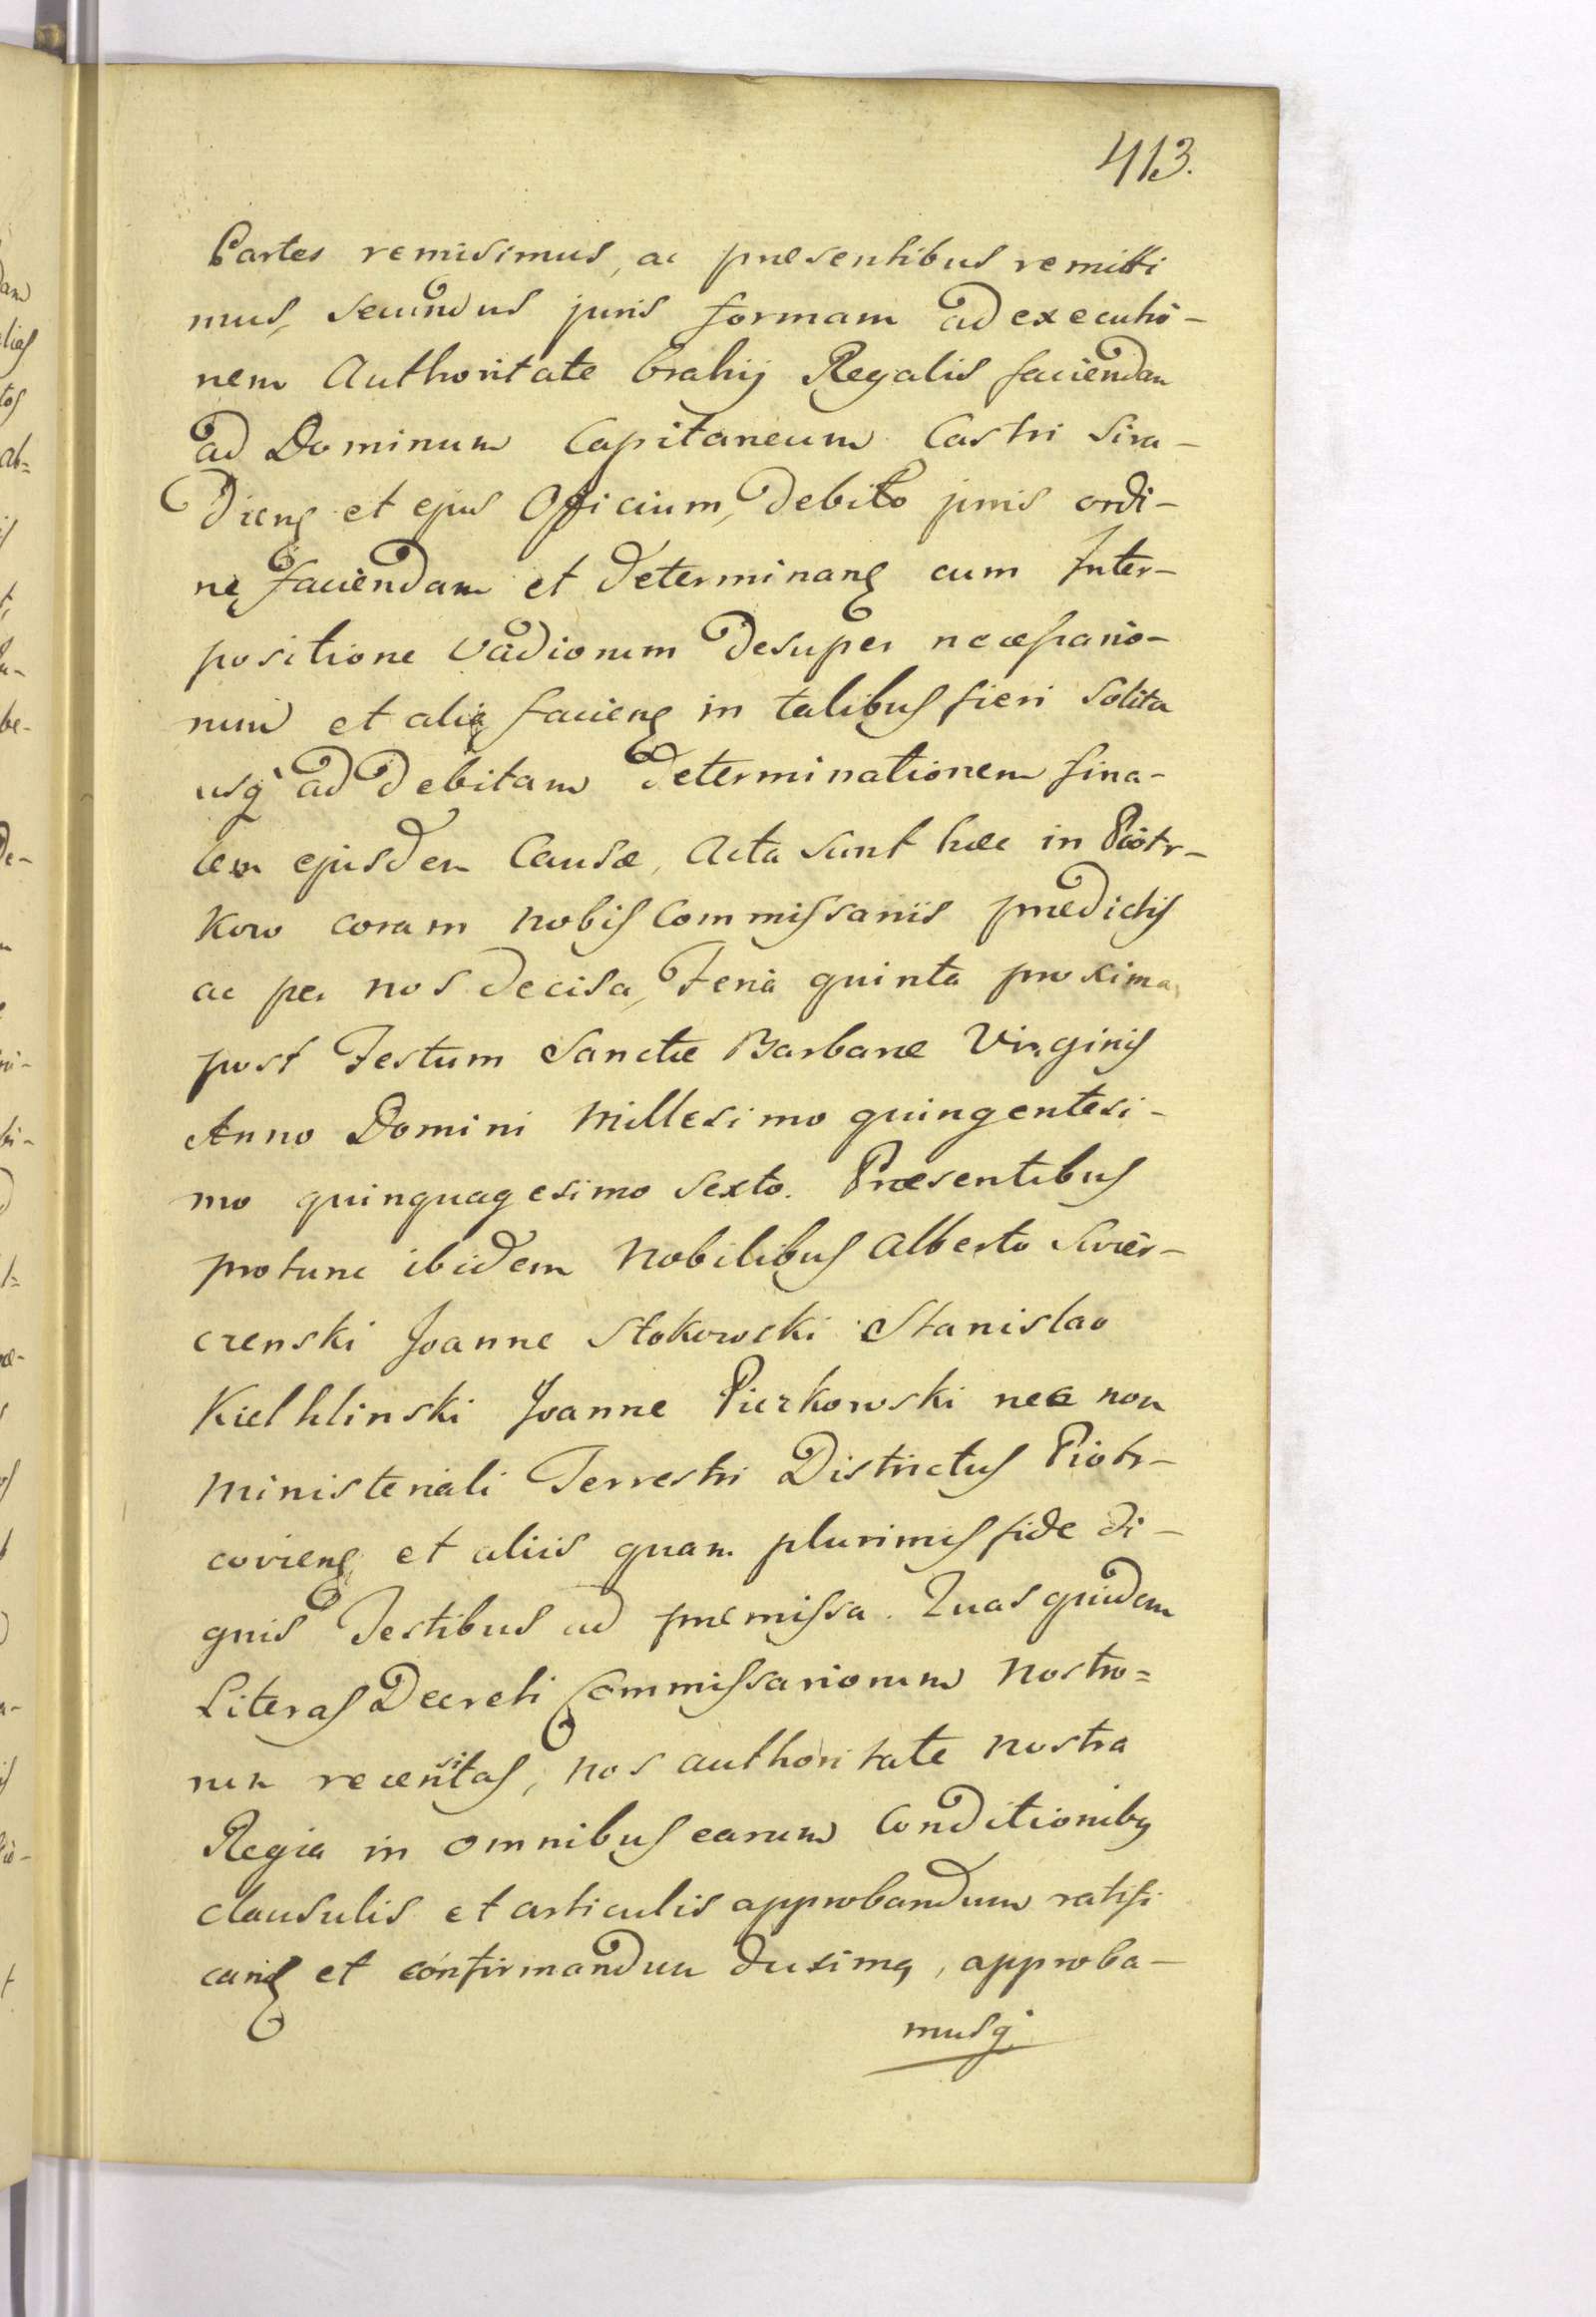 413.
Partes remisimus, ac præsentibus remitti
mus, secundus juris formam ad executio-
nem Authoritate brahij Regalis faciendam
ad Dominum Capitaneum Castri Sira-
dieng et ejus Officium, debito juris ordi-
ne faciendam et determinang cum Inter-
positione vadiorum desuper necessario-
rum et aliq facieng in talibus fieri solita
usq ad debitam determinationem fina-
lem ejusdem Causæ, Acta sunt hæc in Piotr-
kow coram nobis Commissariis prædictis
ac per nos decisa, Feria quinta proxima
post Festum Sanctæ Barbaræ Virginis
Anno Domini Millesimo quingentesi-
mo quinquagesimo sexto. Præsentibus
protunc ibidem Nobilibus Alberto Swier-
czenski Joanne Stokowski Stanislao
Kielhlinski Joanne Piezkowski nec non
Ministeriali Terrestri Districtus Piotr-
covieng et aliis quam plurimis fide di-
gnis Testibus ad præmissa. Quas quidem
Literas Decreti Commissariorum nostro=
rum recensitas, nos authoritate nostra
Regia in omnibus earum Conditionibg
clausulis et articulis approbandum ratifi
cang et confirmandum duximg, approba-
musq